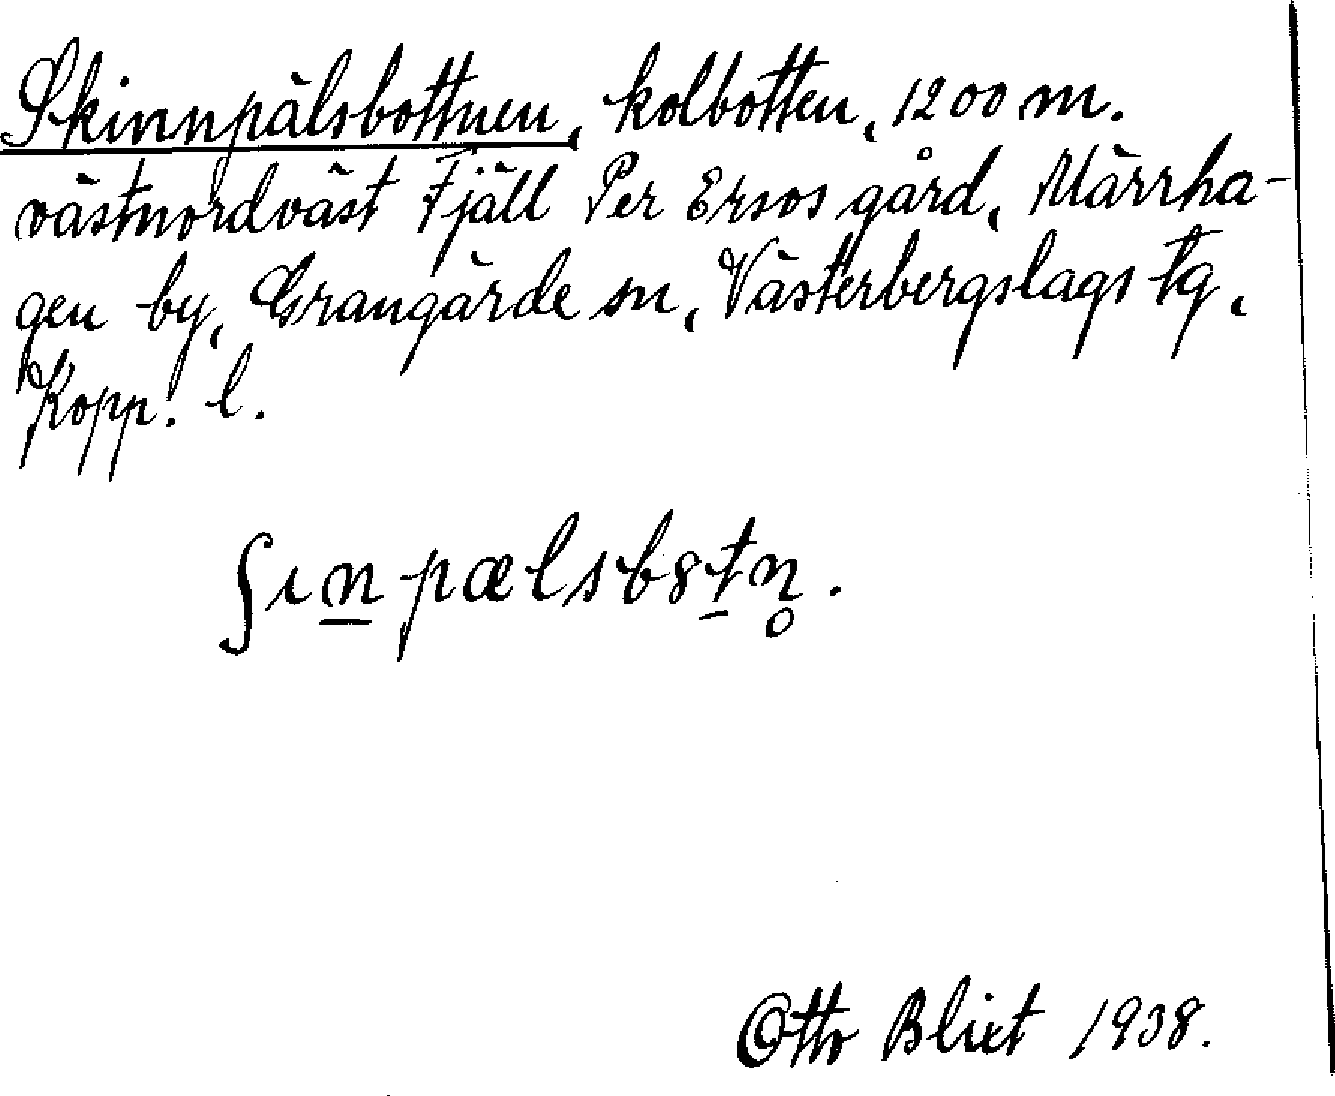 Skinnpälsbottnen, kolbotten, 1200 m.
västnordväst Fjäll Per Ersos gård, Märrha-
gen by, Grangärde sn, Västerbergslags tg,
Kopp. l.
ʃın̲pælsbȣt̲n̥.
Otto Blixt 1938.